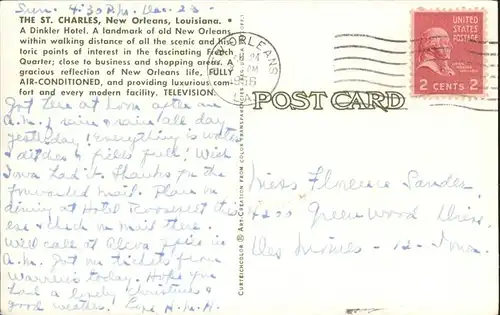 Sun. 4:30 P.M. Dec. 23-
THE ST. CHARLES, New Orleans, Louisiana.
A Dinkler Hotel. A landmark of old New Orleans
within walking distance of all the scenic and his-
toric points of interest in the fascinating French
Quarter; close to business and shopping areas. A
gracious reflection of New Orleans life, FULLY
AIR-CONDITIONED, and providing luxurious com-
fort and every modern facility. TELEVISION.
Got here at noon after an
A.M. rain & rain all day
yesterday! Everything is water
& ditches & fields full! Wish
Iowa had it. Thanks for the
forwarded mail. Plan on
dining at Hotel Roosevelt this
eve & check on mail there.
Will call at office in
A.M. Got my tickets from
Warren today. Hope you
had a lovely Christmas &
good weather. Love H.M.H.
CURTEICHCOLOR ® ART-CREATION FROM COLOR TRANSPARENCIES
NEW ORLEANS
LA.
POST CARD
UNITED STATES
POSTAGE
2 CENTS 2
Miss Florence Sander
4200 Greenwood Drive
Des Moines - 12 - Iowa.